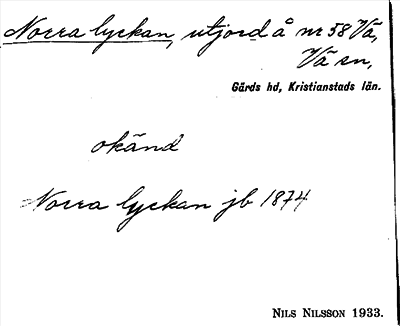 Norra lyckan, utjord å nr 58 Vä,
Vä sn,
Gärds hd, Kristianstads län.
okänd
Norra lyckan jb 1874
NILS NILSSON 1933.